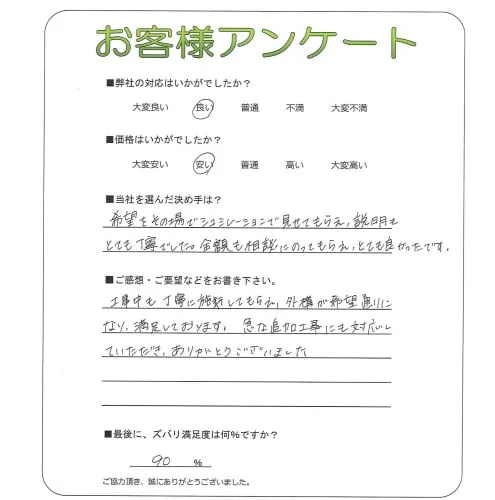 お客様アンケート
■弊社の対応はいかがでしたか？
大変良い 良い 普通 不満 大変不満
■価格はいかがでしたか？
大変安い 安い 普通 高い 大変高い
■当社を選んだ決め手は？
希望をその場でシュミレーションで見せてもらえ、説明も
とても丁寧でした。金額も相談にのってもらえ、とても良かったです。
■ご感想・ご要望などをお書き下さい。
工事中も丁寧に施工してもらえ、外構が希望通りに
なり、満足しております。急な追加工事にも対応し
ていただき、ありがとうございました
■最後に、ズバリ満足度は何%ですか？
90 %
ご協力頂き、誠にありがとうございました。